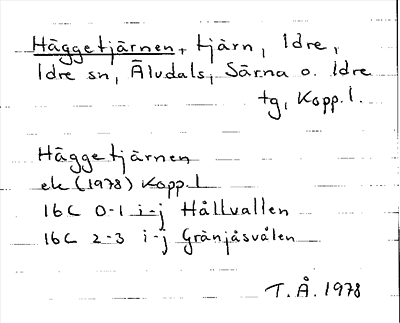 Häggetjärnen, tjärn, Idre,
Idre sn, Älvdals, Särna o. Idre
tg, Kopp. l.
Häggetjärnen
ek (1978) Kopp. l
16C 0-1 i-j Hållvallen
16C 2-3 i-j Gränjåsvålen
T. Å. 1978